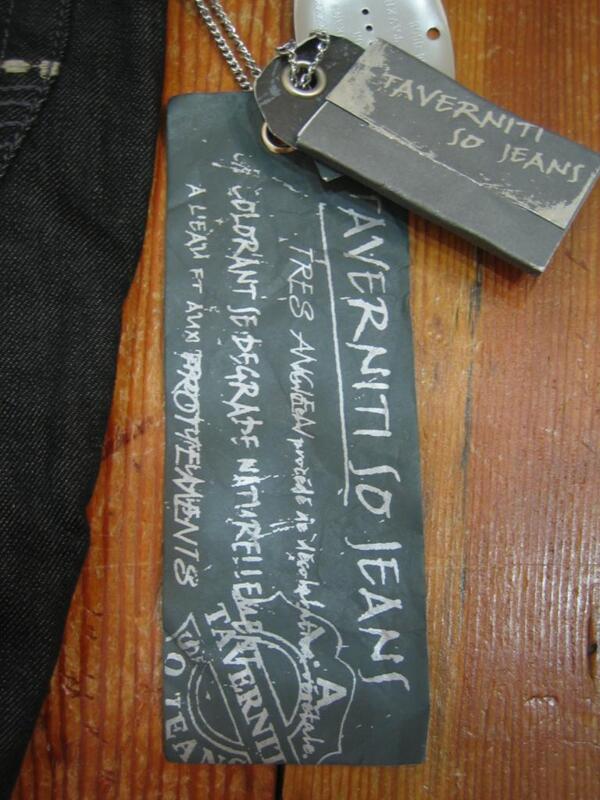 TAVERNITI
SO JEANS
TAVERNITI SO JEANS
TRES ANGIEN procede de
COLORANT SE DEGRADE NATURELLEMENT
A L'EAU ET AUX FROTTEMENTS
TAVERNITI
SO JEANS